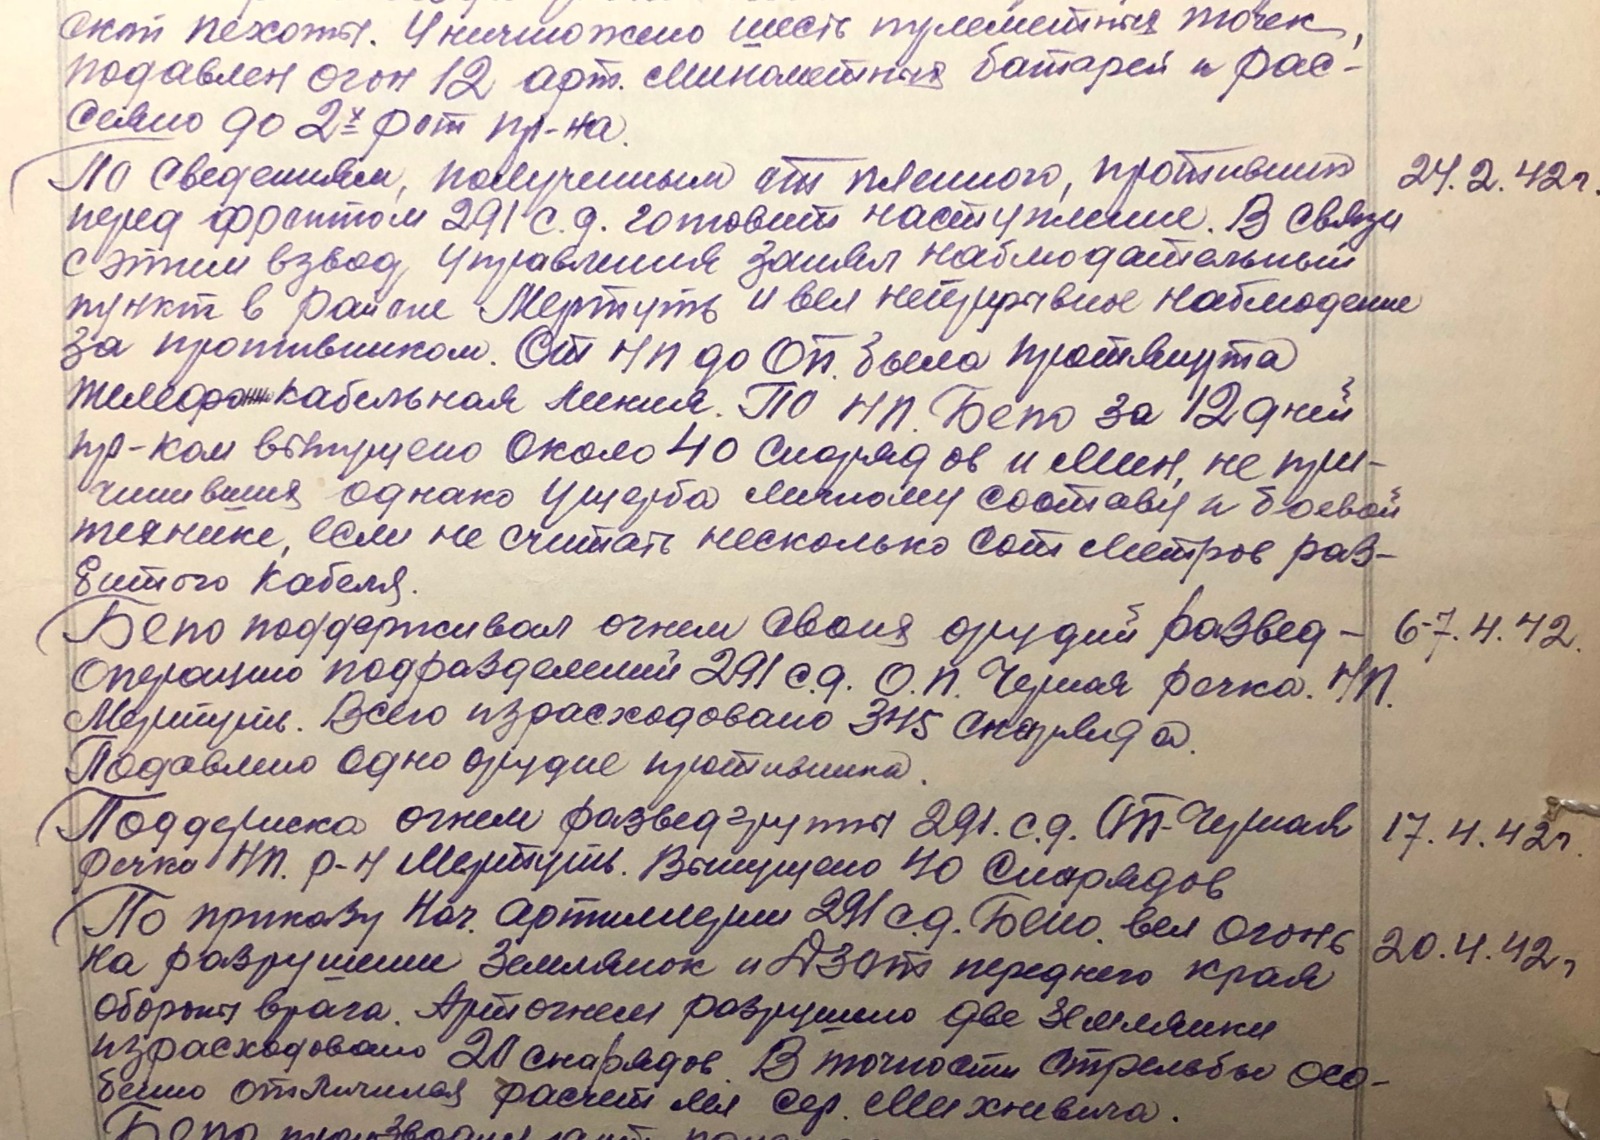 ской пехоты. Уничтожено шесть пулеметных точек,
подавлен огон 12 арт. минометных батарей и рас-
сеяно до 2х рот пр-ка.
По сведениям, полученным от пленного, противник 24.2.42г.
перед фронтом 291 с.д. готовит наступление. В связи
с этим взвод управления занял наблюдательный
пункт в районе Мертуть и вел непрерывное наблюдение
за противником. От НП до ОП. была протянута
телефо кабельная линия. По НП. Бепо за 12 дней
пр-ком выпущено около 40 снарядов и мин, не при-
чинивших однако ущерба личному составу и боевой
технике, если не считать несколько сот метров раз-
битого кабеля.
Бепо поддерживал огнем своих орудий развед- 6-7.4.42.
операцию подразделений 291 с.д. О.П. Черная речка. НП.
Мертуть. Всего израсходовано 345 снаряда.
Подавлено одно орудие противника.
Поддержка огнем разведгруппы 291. с.д. ОП-Черная 17.4.42г.
речка НП. р-н Мертуть. Выпущено 40 снарядов
По приказу Нач. Артиллерии 291 с.д. Бепо. вел огонь 20.4.42г
на разрушение землянок и ДЗОТ переднего края
обороны врага. Артогнем разрушено две землянки
израсходовано 20 снарядов. В точности стрельбы осо-
бенно отличился расчет мл сер. Михневича.
Бепо